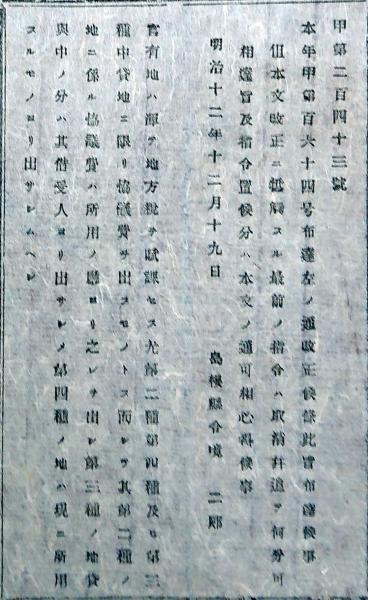 甲第二百四十三號
本年甲第百六十四号布達左ノ通改正候條此旨布達候事
但本文改正ニ牴觸スル最前ノ指令ハ取消井追テ何分可
相達旨及指令置候分ハ本文ノ通可相心得候事
明治十二年十二月十九日　島根縣令境　二郎
官有地ハ渾テ地方稅ヲ賦課セス尤第二種第四種及ヒ第三
種中貸地ニ限リ協議費ヲ出スモノトス而シテ其第二種ノ
地ニ係ル協議費ハ所用ノ廳ヨリ之レヲ出シ第三種ノ地貸
與中ノ分ハ其借受人ヨリ出サシメ第四種ノ地ハ現ニ所用
スルモノヨリ出サシムヘシ